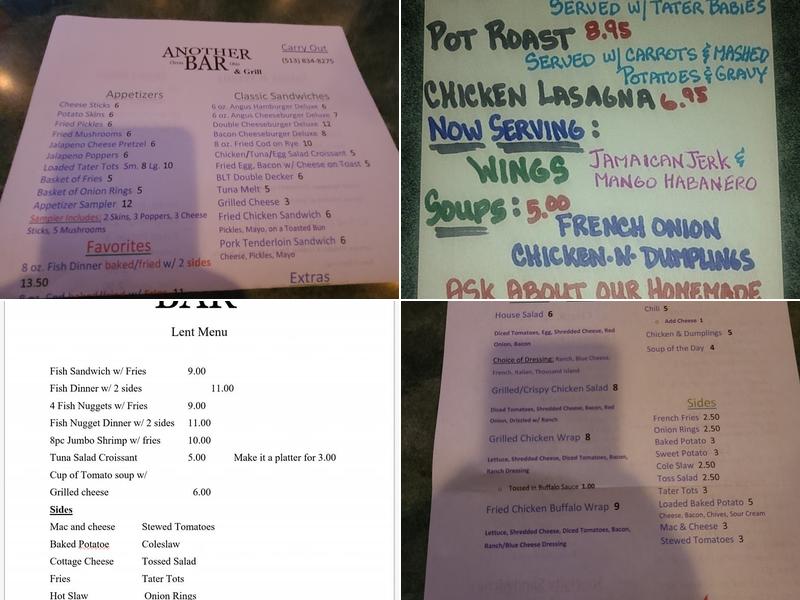 ANOTHER
BAR
& Grill
Carry Out
(513) 834-8275
Appetizers
Cheese Sticks 6
Potato Skins 6
Fried Pickles 6
Fried Mushrooms 6
Jalapeno Cheese Pretzel 6
Jalapeno Poppers 6
Loaded Tater Tots Sm. 8 Lg. 10
Basket of Fries 5
Basket of Onion Rings 5
Appetizer Sampler 12
Sampler Includes: 2 Skins, 3 Poppers, 3 Cheese
Sticks, 5 Mushrooms
Favorites
8 oz. Fish Dinner baked/fried w/ 2 sides
13.50
Classic Sandwiches
6 oz. Angus Hamburger Deluxe 6
6 oz. Angus Cheeseburger Deluxe 7
Double Cheeseburger Deluxe 12
Bacon Cheeseburger Deluxe 8
8 oz. Fried Cod on Rye 10
Chicken/Tuna/Egg Salad Croissant 5
Fried Egg, Bacon w/ Cheese on Toast 5
BLT Double Decker 6
Tuna Melt 5
Grilled Cheese 3
Fried Chicken Sandwich 6
Pickles, Mayo, on a Toasted Bun
Pork Tenderloin Sandwich 6
Cheese, Pickles, Mayo
Extras
SERVED W/ TATER BABIES
POT ROAST 8.95
SERVED W/ CARROTS & MASHED
POTATOES & GRAVY
CHICKEN LASAGNA 6.95
NOW SERVING:
WINGS JAMAICAN JERK &
MANGO HABANERO
SOUPS: 5.00
FRENCH ONION
CHICKEN-N-DUMPLINGS
ASK ABOUT OUR HOMEMADE
BAR
Lent Menu
Fish Sandwich w/ Fries 9.00
Fish Dinner w/ 2 sides 11.00
4 Fish Nuggets w/ Fries 9.00
Fish Nugget Dinner w/ 2 sides 11.00
8pc Jumbo Shrimp w/ fries 10.00
Tuna Salad Croissant 5.00 Make it a platter for 3.00
Cup of Tomato soup w/
Grilled cheese 6.00
Sides
Mac and cheese Stewed Tomatoes
Baked Potatoe Coleslaw
Cottage Cheese Tossed Salad
Fries Tater Tots
Hot Slaw Onion Rings
House Salad 6
Diced Tomatoes, Egg, Shredded Cheese, Red
Onion, Bacon
Choice of Dressing: Ranch, Blue Cheese,
French, Italian, Thousand Island
Grilled/Crispy Chicken Salad 8
Diced Tomatoes, Shredded Cheese, Bacon, Red
Onion, Drizzled w/ Ranch
Grilled Chicken Wrap 8
Lettuce, Shredded Cheese, Diced Tomatoes, Bacon,
Ranch Dressing
Tossed in Buffalo Sauce 1.00
Fried Chicken Buffalo Wrap 9
Lettuce, Shredded Cheese, Diced Tomatoes, Bacon,
Ranch/Blue Cheese Dressing
Chili 5
Add Cheese 1
Chicken & Dumplings 5
Soup of the Day 4
Sides
French Fries 2.50
Onion Rings 2.50
Baked Potato 3
Sweet Potato 3
Cole Slaw 2.50
Toss Salad 2.50
Tater Tots 3
Loaded Baked Potato 5
Cheese, Bacon, Chives, Sour Cream
Mac & Cheese 3
Stewed Tomatoes 3